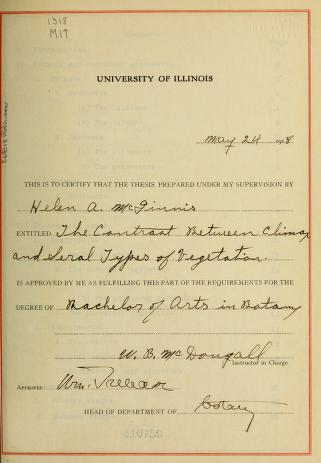 1318
M17
UNIVERSITY OF ILLINOIS
May 24 1918
THIS IS TO CERTIFY THAT THE THESIS PREPARED UNDER MY SUPERVISION BY
Helen A. McGinnis
ENTITLED The Contrast Between Climax
and Seral Types of Vegetation.
IS APPROVED BY ME AS FULFILLING THIS PART OF THE REQUIREMENTS FOR THE
DEGREE OF Bachelor of Arts in Botany
W. B. McDougall
Instructor in Charge
APPROVED: Wm. Trelease
HEAD OF DEPARTMENT OF Botany
410759